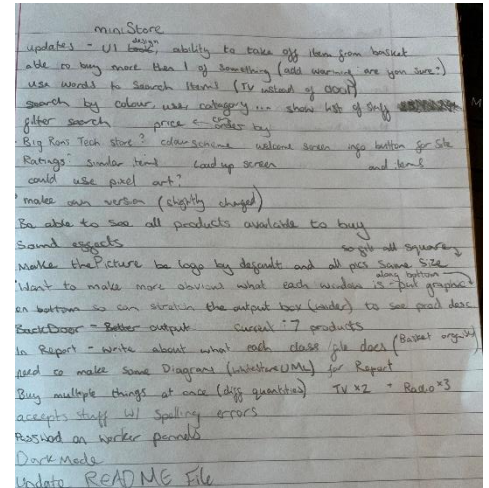 miniStore
updates - UI design, ability to take off item from basket
able to buy more then 1 of something (add warning are you sure?)
use words to search items (TV instead of 0001)
search by colour, use, category... show list of stuff
filter search price ← can order by
· Big Rons Tech store? colour scheme welcome screen info button for site
Ratings? similar items Load up screen and items
could use pixel art?
· make own version (slightly changed)
Be able to see all products available to buy
Sound effects so all square
Make the Picture be logo by default and all pics same size
· Want to make more obvious what each window is - put graphic along bottom
on bottom so can stretch the output box (wider) to see prod desc
BackDoor - Better output current : 7 products
In Report - write about what each class file does (Basket organised)
need to make some Diagrams (UML) for Report
Buy multiple things at once (diff quantities) TV x2 + Radio x3
accepts stuff w/ spelling errors
Password on worker pannels
Dark Mode
Update README File